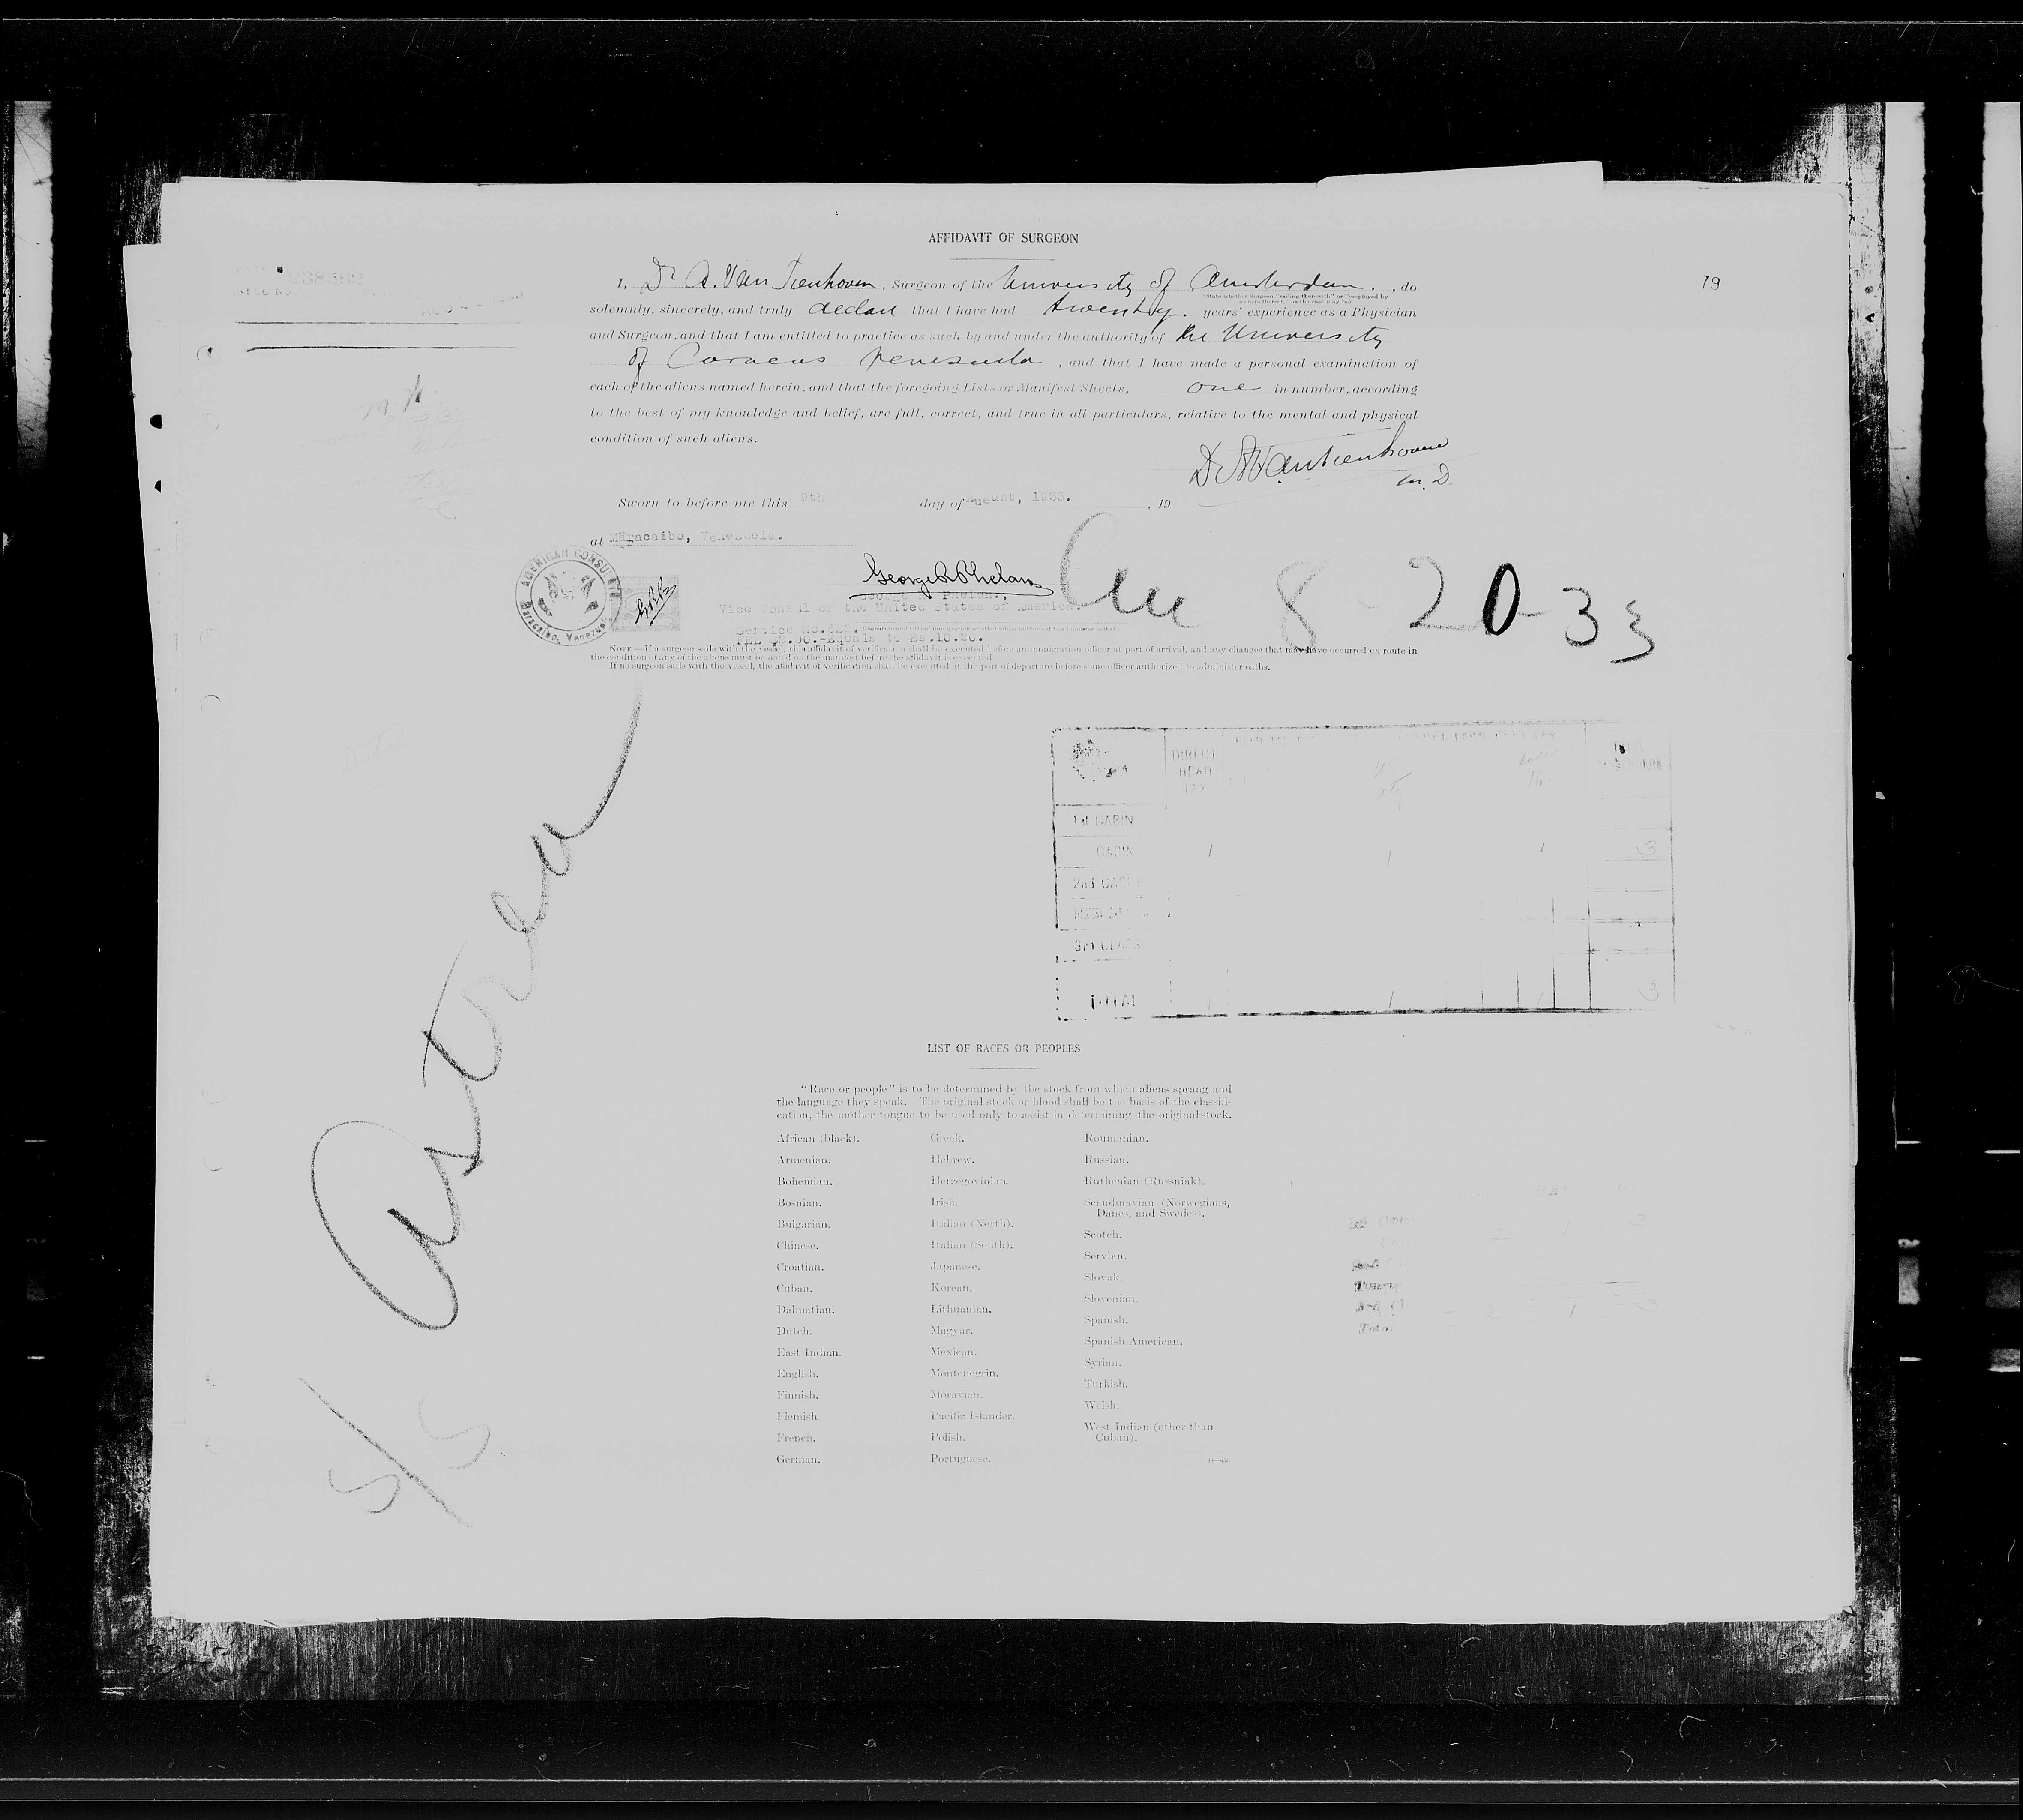 AFFIDAVIT OF SURGEON
19
I, Dr A. Van Tienhoven, Surgeon of the University of Amsterdam, do
(State whether Surgeon "sailing therewith" or "employed by owners thereof," as the case may be)
solemnly, sincerely, and truly declare that I have had twenty years' experience as a Physician
and Surgeon, and that I am entitled to practice as such by and under the authority of the University
of Caracas Venezuela, and that I have made a personal examination of
each of the aliens named herein, and that the foregoing Lists or Manifest Sheets, one in number, according
to the best of my knowledge and belief, are full, correct, and true in all particulars, relative to the mental and physical
condition of such aliens.
Dr A Van Tienhoven
m.D
Sworn to before me this 9th day of August, 1933. , 19
at Maracaibo, Venezuela.
AMERICAN CONSULATE
Maracaibo, Venezuela
George R Phelan
Vice Consul of the United States of America.
8-20-33
NOTE.—If a surgeon sails with the vessel, this affidavit of verification shall be executed before an immigration officer at port of arrival, and any changes that may have occurred en route in
the condition of any of the aliens must be noted on the manifest before the affidavit is executed.
If no surgeon sails with the vessel, the affidavit of verification shall be executed at the port of departure before some officer authorized to administer oaths.
S/S Astrea
DIRECT
HEAD
TAX
1st CABIN
CABIN 1 1 1 3
2nd CABIN
3rd CLASS
TOTAL 1 1 1 3
LIST OF RACES OR PEOPLES
"Race or people" is to be determined by the stock from which aliens sprang and
the language they speak. The original stock or blood shall be the basis of the classifi-
cation, the mother tongue to be used only to assist in determining the original stock.
African (black).
Armenian.
Bohemian.
Bosnian.
Bulgarian.
Chinese.
Croatian.
Cuban.
Dalmatian.
Dutch.
East Indian.
English.
Finnish.
Flemish
French.
German.
Greek.
Hebrew.
Herzegovinian.
Irish.
Italian (North).
Italian (South).
Japanese.
Korean.
Lithuanian.
Magyar.
Mexican.
Montenegrin.
Moravian.
Pacific Islander.
Polish.
Portuguese.
Roumanian.
Russian.
Ruthenian (Russniak).
Scandinavian (Norwegians,
Danes, and Swedes).
Scotch.
Servian.
Slovak.
Slovenian.
Spanish.
Spanish American.
Syrian.
Turkish.
Welsh.
West Indian (other than
Cuban).